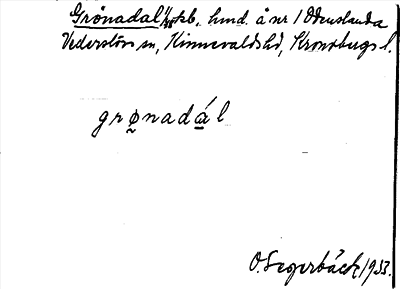 Grönadal 1/8 skb, hmd. å nr 1 Odenslanda
Vederslövs sn, Kinnevalds hd, Kronobergs l.
grø̰nadá̲l
O. Segerbäck, 1933.